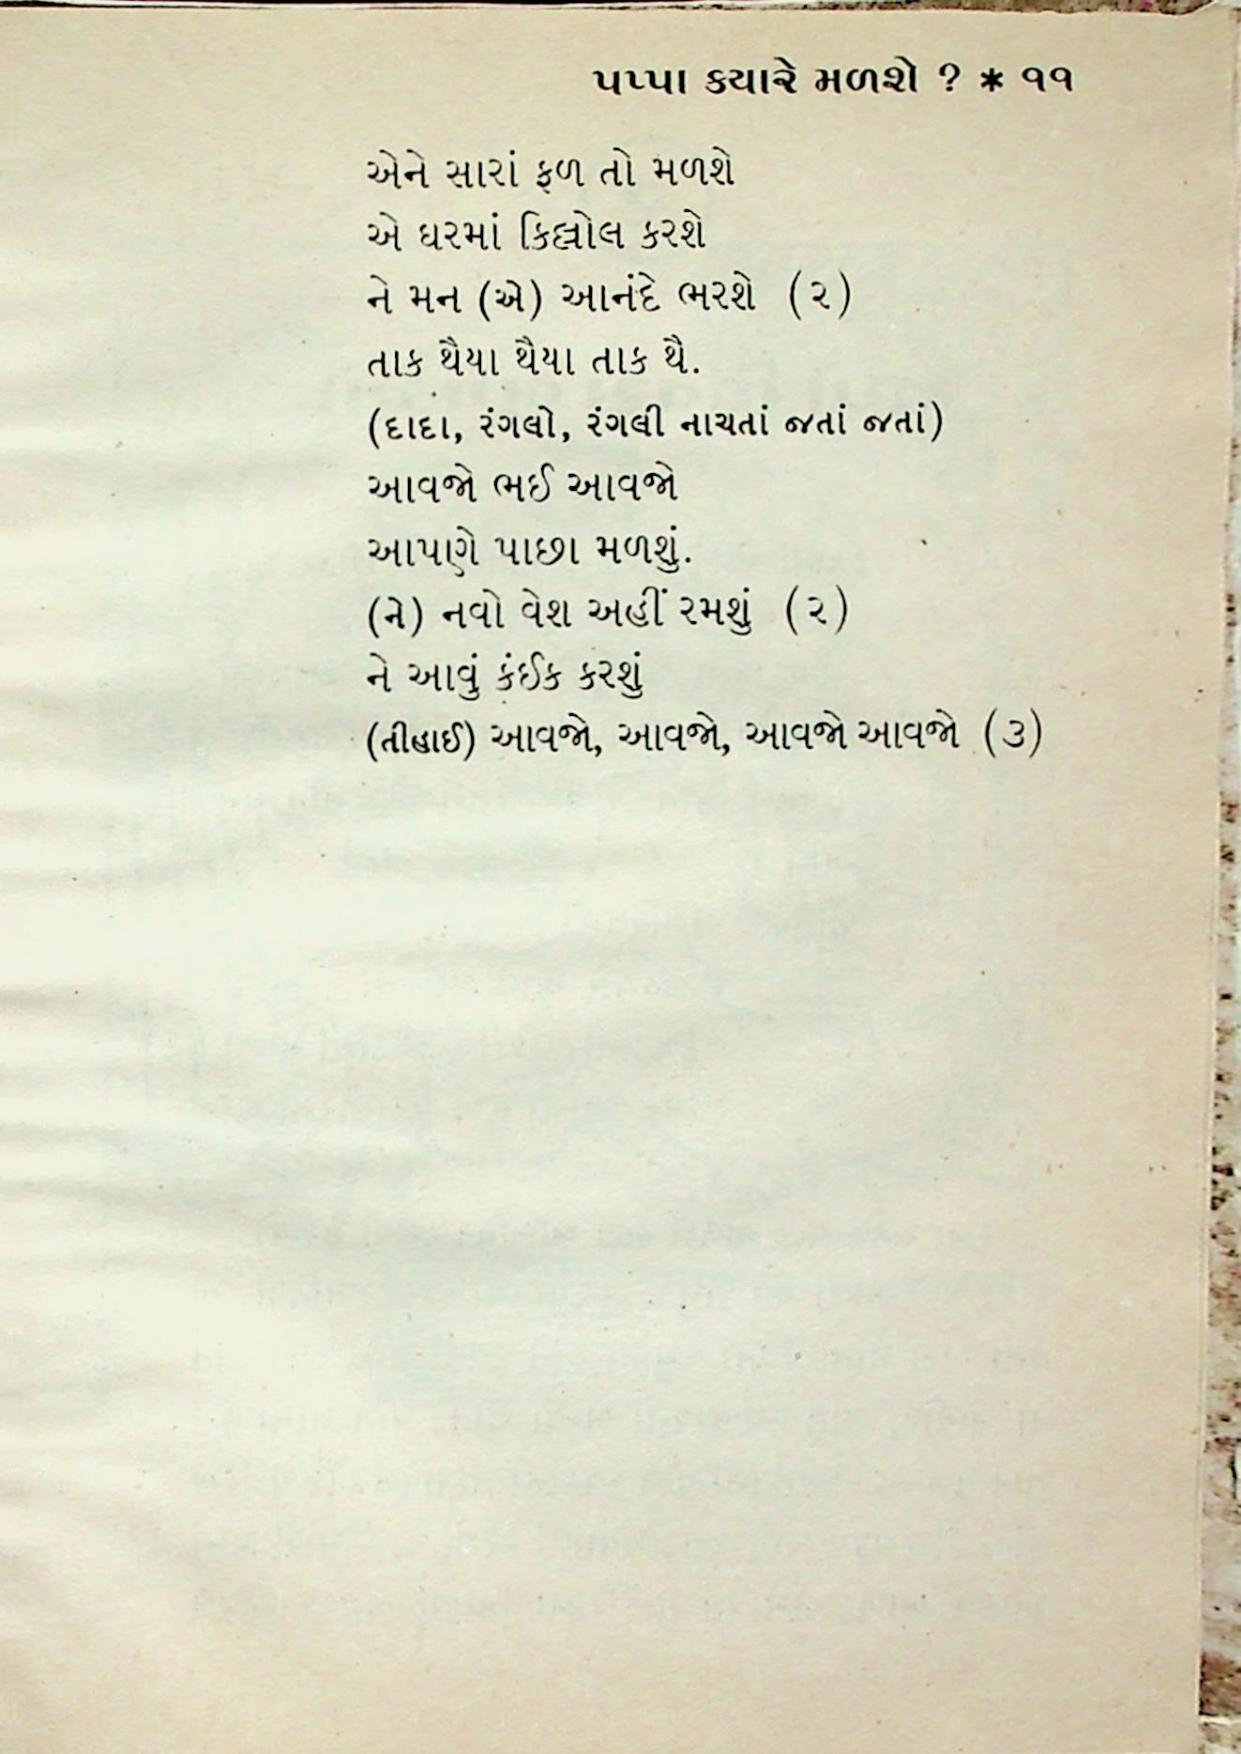 પપ્પા ક્યારે મળશે ? * ૧૧
એને સારાં ફળ તો મળશે
એ ઘરમાં કિલ્લોલ કરશે
ને મન (એ) આનંદે ભરશે (૨)
તાક થૈયા થૈયા તાક થૈ.
(દાદા, રંગલો, રંગલી નાચતાં જતાં જતાં)
આવજો ભઈ આવજો
આપણે પાછા મળશું.
(ને) નવો વેશ અહીં રમશું (૨)
ને આવું કંઈક કરશું
(તીહાઈ) આવજો, આવજો, આવજો આવજો (૩)